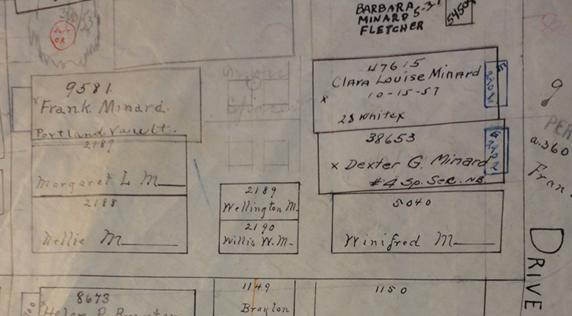 BARBARA 5-3
MINARD
FLETCHER
5450
9581
x Frank Minard.
Portland Vault.
2187
Margaret L M
2188
Nellie M
2189
Wellington M.
2190
Willis W. M.
47615
Clara Louise Minard
x 10-15-57
28 Whitex
38653
x Dexter G. Minard
#4 Sp. Sec. NB
5040
Winifred M
8673
1149
Brayton
1150
PER
a.360
Fran
DRIVE